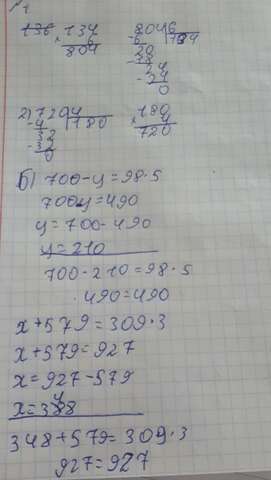 №1
136 134 804 6
× 6 -6 134
804 20
-18
24
-24
0
2) 720 4 180
-4 180 × 4
32 720
-32
0
б) 700-y=98·5
700-y=490
y=700-490
y=210
700-210=98·5
490=490
x+579=309·3
x+579=927
x=927-579
x=348
348+579=309·3
927=927